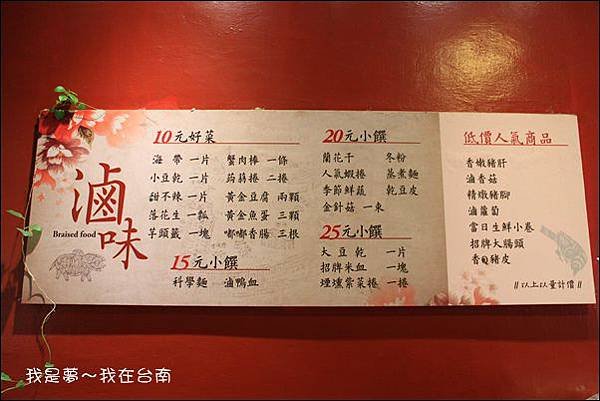 滷味
Braised food
10元好菜
海帶 一片 蟹肉棒 一條
小豆乾 一片 蒟蒻捲 二捲
甜不辣 一片 黃金豆腐 兩顆
落花生 一瓢 黃金魚蛋 三顆
芋頭籤 一塊 嘟嘟香腸 三根
15元小饌
科學麵 滷鴨血
20元小饌
蘭花干 冬粉
人氣蝦捲 蒸煮麵
季節鮮蔬 乾豆皮
金針菇 一束
25元小饌
大豆乾 一片
招牌米血 一塊
煙燻紫菜捲 一捲
低價人氣商品
香嫩豬肝
滷香菇
精燉豬腳
滷蘿蔔
當日生鮮小卷
招牌大腸頭
香Q豬皮
// 以上以量計價 //
我是夢～我在台南